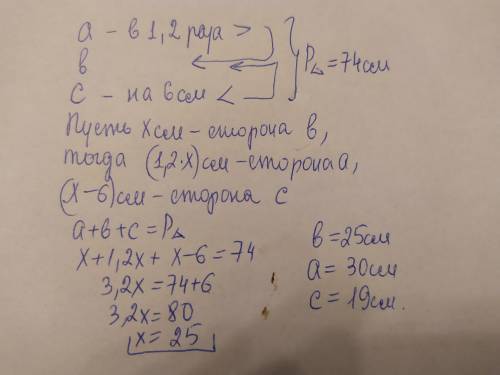 a - в 1,2 раза >
в
c - на 6 см <
P△ = 74 см
Пусть x см - сторона в,
тогда (1,2·x) см - сторона a,
(x-6) см - сторона c
a+в+c = P△
x+1,2x+ x-6 = 74
3,2x = 74+6
3,2x = 80
x = 25
в = 25 см
a = 30 см
c = 19 см.